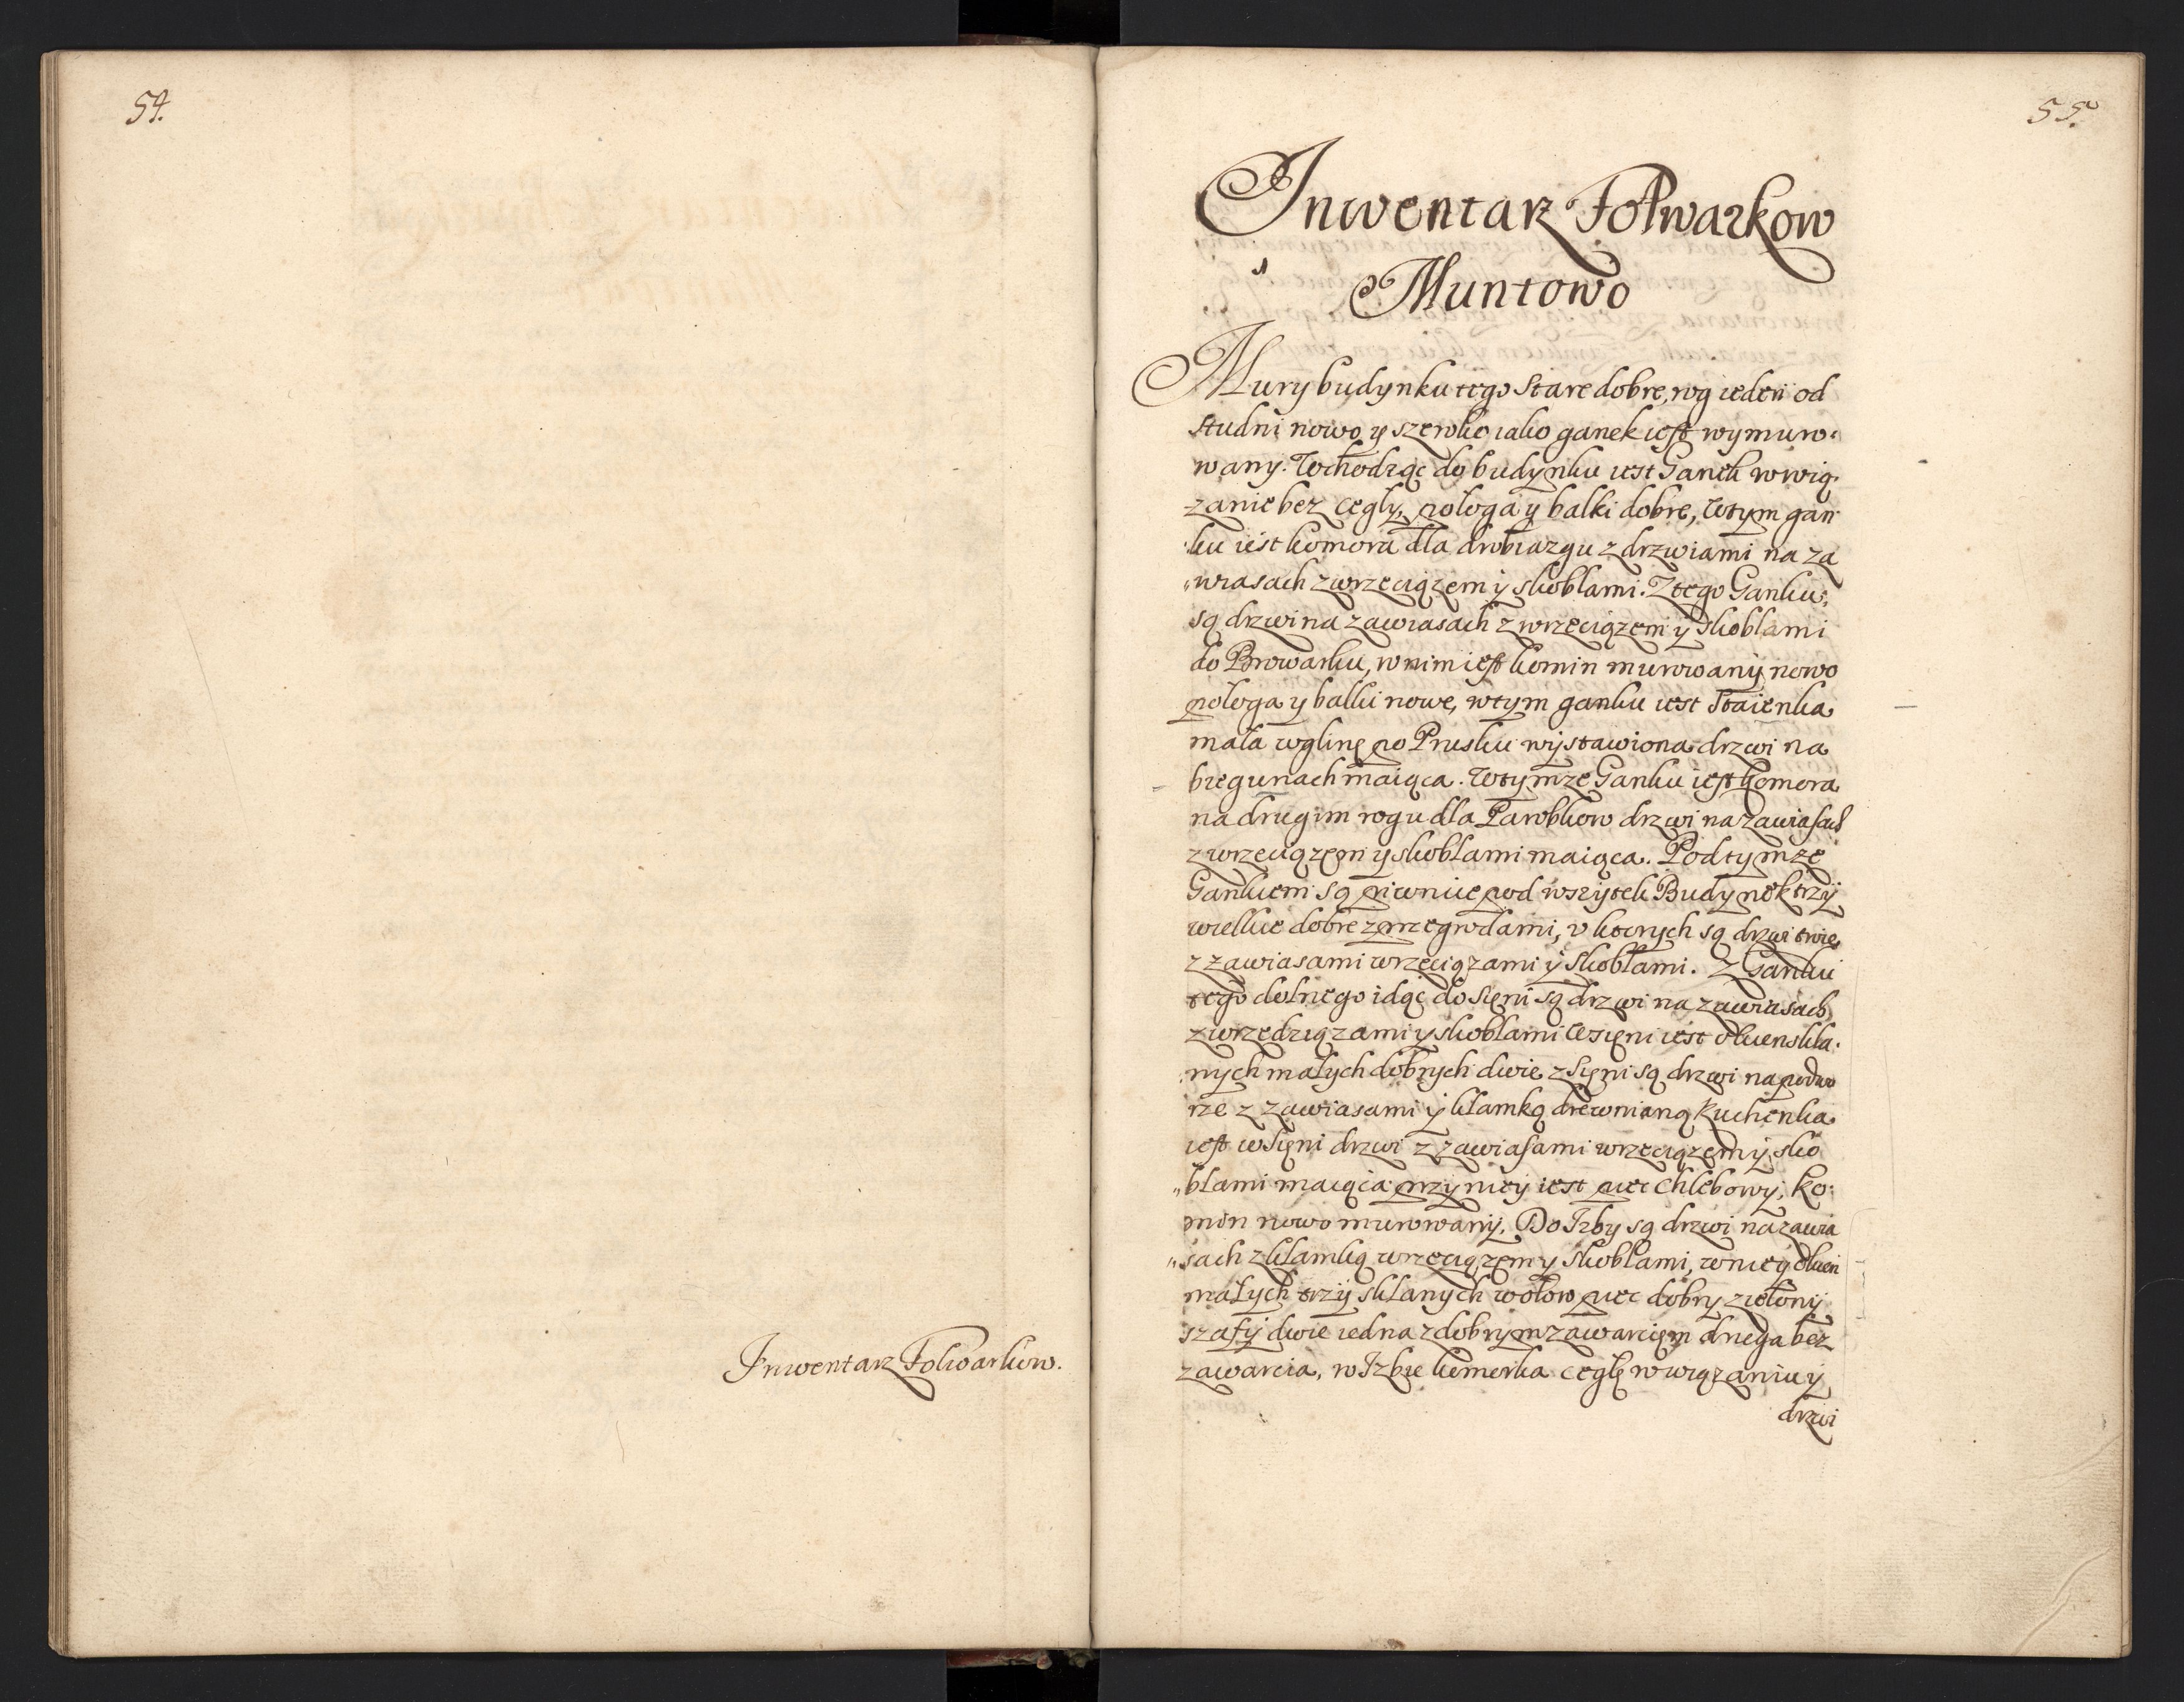 54.
Inwentarz Folwarkow.
55.
Inwentarz Folwarkow
Muntowo
Mury budynku tego Stare dobre, rog ieden od
studni nowo y szeroko iako ganek iest wymuro-
wany. Wchodząc do budynku iest Ganek w wią-
zanie bez cegły, pologa y balki dobre, W tym gan
ku iest komora dla drobiazgu z drzwiami na za
"wiasach z wrzeciązem y skoblami. Z tego Ganku,
są drzwi na zawiasach z wrzeciązem y skoblami
do Browarku, w nim iest komin murowany nowo
pologa y balki nowe, w tym ganku iest Staienka
mała w glinę po Prusku wystawiona drzwi na
biegunach maiąca. W tymze Ganku iest komora
na drugim rogu dla Parobkow drzwi na zawiasach
z wrzeciązem y skoblami maiąca. Pod tymze
Gankiem są piwnice pod wszytek Budynek trzy
wielkie dobre z przegrodami, v ktorych są drzwi troie
z zawiasami wrzeciązami y skoblami. Z Ganku
tego dolnego idąc do sięni są drzwi na zawiasach
z wrzedziązami y skoblami W sięni iest okien skla-
nych małych dobrych dwie z sięni są drzwi na podwo
rze z zawiasami y klamką drewnianą Kuchenka
iest w sięni drzwi z zawiasami wrzeciązem y sko
"blami maiąca przy niey iest piec chlebowy, ko-
min nowo murowany. Do Izby są drzwi na zawia
"sach z klamką wrzeciązem y skoblami, w niey okien
małych trzy sklanych w ołow piec dobry zielony
szafy dwie iedna z dobrym zawarciem druga bez
zawarcia, w Izbie komorka cegłę w wiązaniu y
drzwi